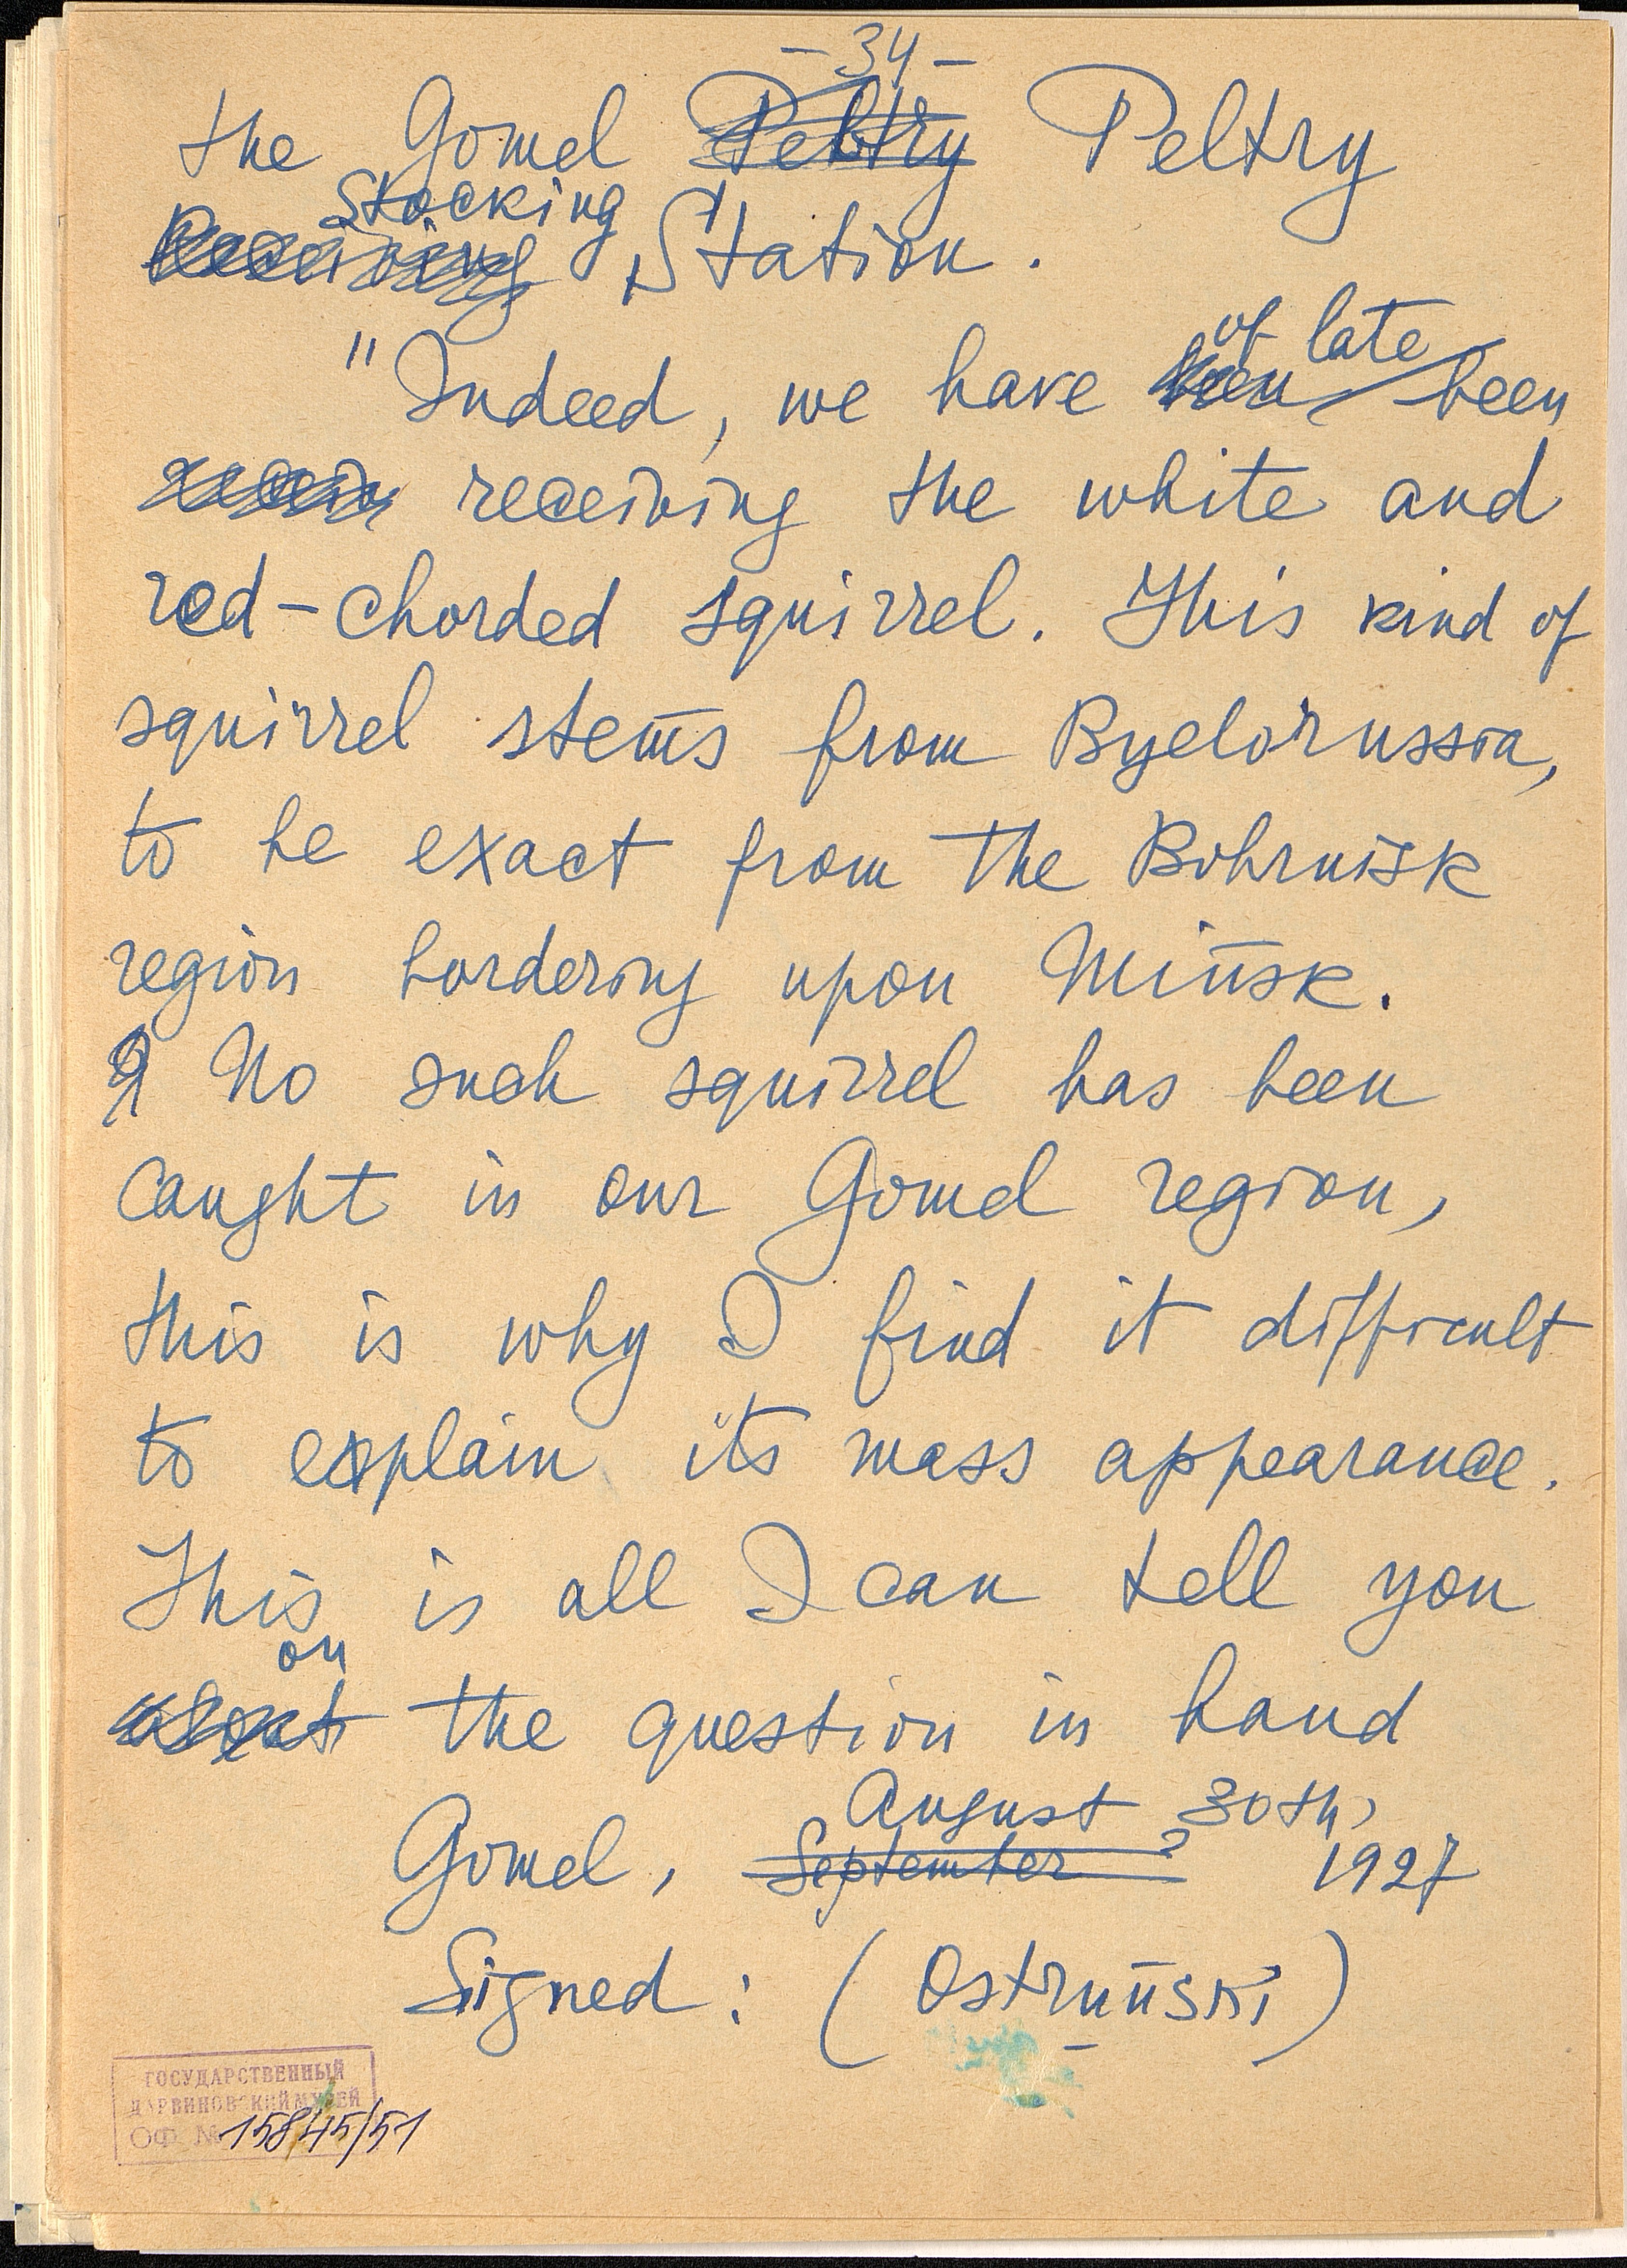 - 34 -
the Gomel Peltry Peltry
Stocking
Receiving Station.
of late
"Indeed, we have been been
receiving the white and
red-chorded squirrel. This kind of
squirrel stems from Byelorussia,
to be exact from the Bobruisk
region bordering upon Minsk.
No such squirrel has been
caught in our Gomel region,
this is why I find it difficult
to explain its mass appearance.
This is all I can tell you
on
about the question in hand
August 30th,
Gomel, September 1927
Signed: (Ostrunski)
ГОСУДАРСТВЕННЫЙ
ДАРВИНОВСКИЙ МУЗЕЙ
ОФ № 15845/51